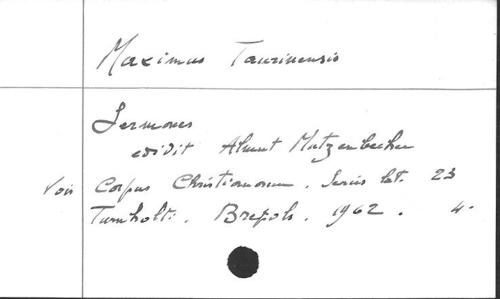 Maximus Taurinensis
Sermones
edidit Almut Mutzenbecher
Voir Corpus Christianorum. Series lat. 23
Turnholti. Brepols. 1962. 4.